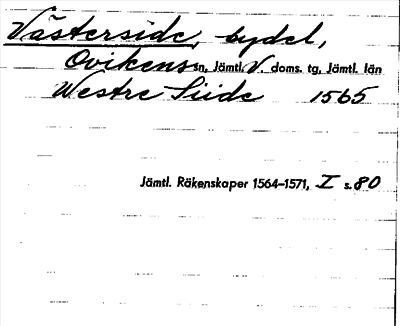 Västerside, bydel,
Ovikens sn, Jämtl. V. doms. tg, Jämtl. län
Westre Siide 1565
Jämtl. Räkenskaper 1564–1571, I s. 80